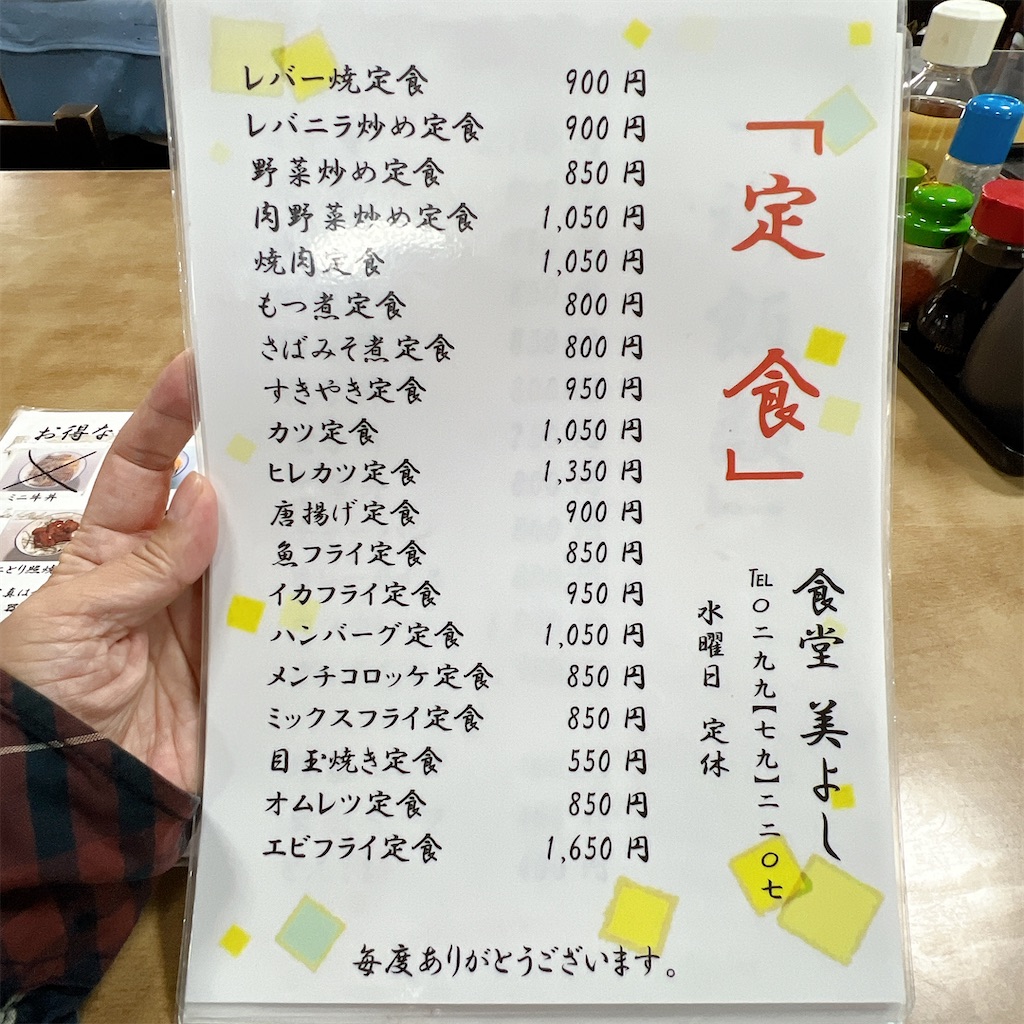 「定食」
レバー焼定食 900円
レバニラ炒め定食 900円
野菜炒め定食 850円
肉野菜炒め定食 1,050円
焼肉定食 1,050円
もつ煮定食 800円
さばみそ煮定食 800円
すきやき定食 950円
カツ定食 1,050円
ヒレカツ定食 1,350円
唐揚げ定食 900円
魚フライ定食 850円
イカフライ定食 950円
ハンバーグ定食 1,050円
メンチコロッケ定食 850円
ミックスフライ定食 850円
目玉焼き定食 550円
オムレツ定食 850円
エビフライ定食 1,650円
食堂 美よし
TEL〇二九九【七九】二二〇七
水曜日 定休
毎度ありがとうございます。
お得な
ミニ牛丼